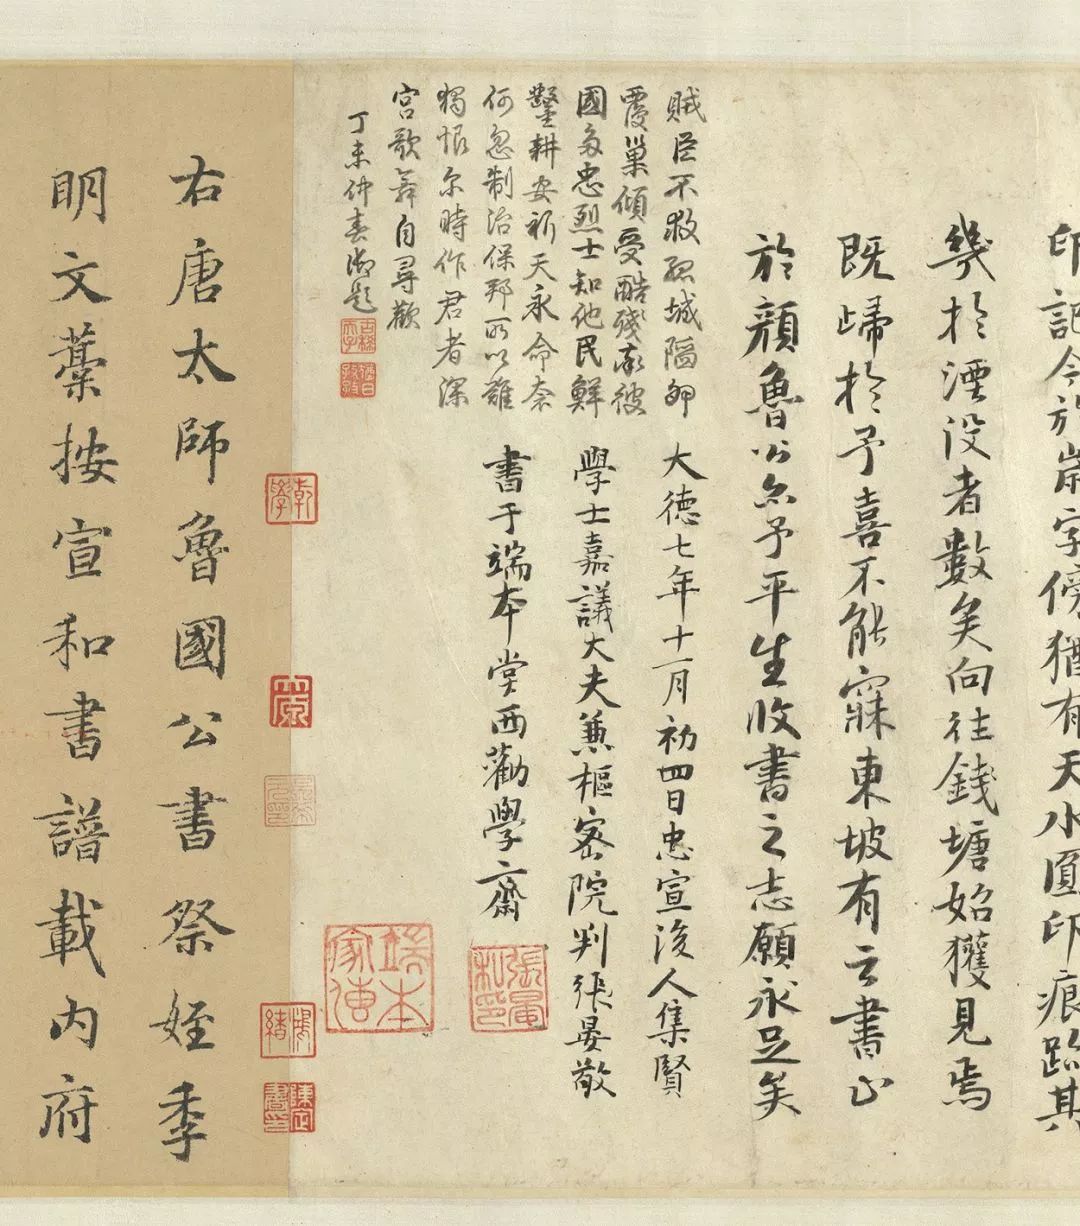 印記令於崗字傍猶有天水圓印痕跡其
幾於湮沒者數矣向往錢塘始獲見焉
既歸於予喜不能寐東坡有云書止
於顏魯公然予平生收書之志願永足矣
大德七年十一月初四日忠宣後人集賢
學士嘉議大夫兼樞密院判張晏敬
書于端本堂西勸學齋
賊臣不救孤城陷卵
覆巢傾受酷殘彼
國多忠烈士知他民鮮
鑿耕安祈天永命柰
何忽制治保邦所以難
獨恨尔時作君者深
宮歌舞自尋歡
丁未仲春御題
右唐太師魯國公書祭姪季
明文藁按宣和書譜載內府
端本家傳
張晏私印
乾學